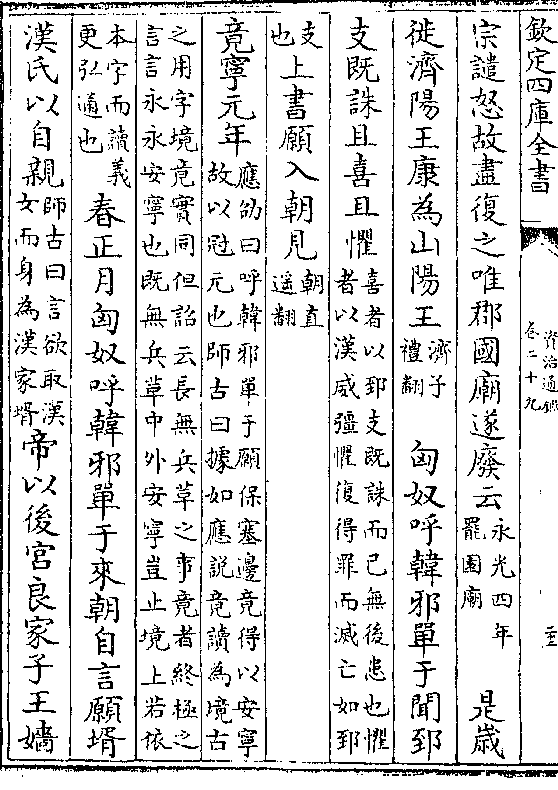 欽定四庫全書
資治通鑑
卷二十九
宗譴怒故盡復之唯郡國廟遂廢云永光四年罷園廟是歳
徙濟陽王康為山陽王濟子禮翻匈奴呼韓邪單于聞郅
支既誅且喜且懼喜者以郅支既誅而已無後患也懼者以漢威彊懼復得罪而滅亡如郅
支也上書願入朝見朝直遥翻
竟寧元年應劭曰呼韓邪單于願保塞邊竟得以安寧故以冠元也師古曰據如應説竟讀為境古
之用字境竟實同但詔云長無兵革之事竟者終極之言言永永安寧也既無兵革中外安寧豈止境上若依
本字而讀義更弘通也春正月匈奴呼韓邪單于來朝自言願壻
漢氏以自親師古曰言欲取漢女而身為漢家壻帝以後宫良家子王嬙